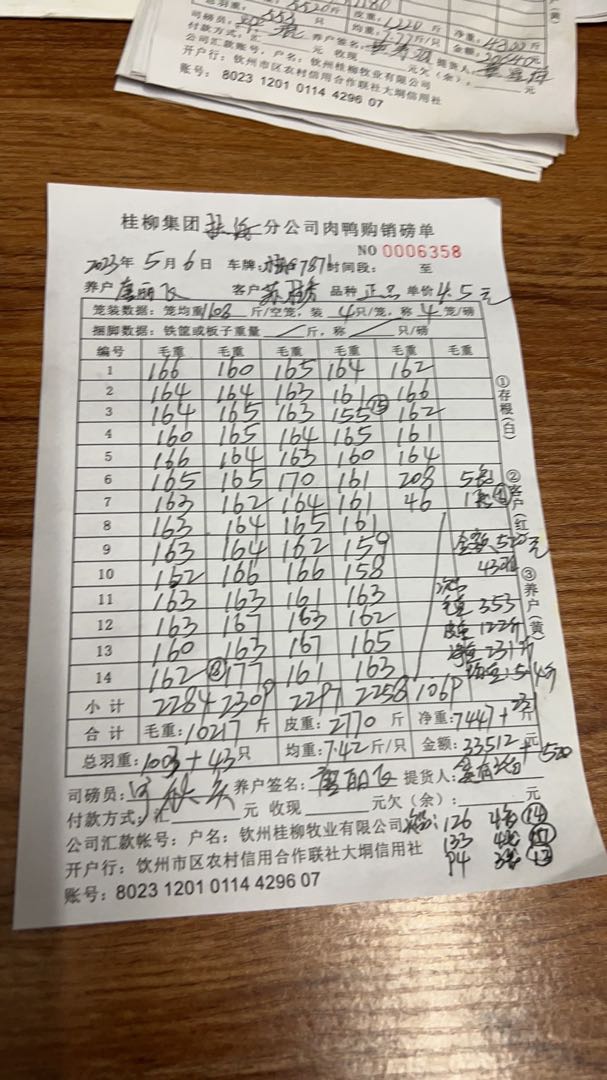 皮重:1220斤
只 均重:7.77斤/只 金额:
付款方式:汇 元 收现 元欠(余): 元
公司汇款账号:户名:钦州桂柳牧业有限公司
开户行:钦州市区农村信用合作联社大垌信用社
账号:8023 1201 0114 4296 07
桂柳集团 分公司肉鸭购销磅单
NO 0006358
2023年5月6日 车牌: 787 时间段: 至
养户 客户 品种 正品 单价 4.5元
笼装数据:笼均重 108 斤/空笼,装 4只/笼,称 4 笼/磅
捆脚数据:铁筐或板子重量 斤,称 只/磅
编号 毛重 毛重 毛重 毛重 毛重 毛重
1 166 160 165 164 162
2 164 164 163 161 166
3 164 165 163 155 ⑮ 162
4 160 165 164 165 161
5 166 164 163 160 164
6 165 165 170 161 208
7 163 162 164 161 46
8 163 164 165 161
9 163 164 162 159
10 152 166 166 158
11 163 163 161 163
12 163 167 163 162
13 160 163 167 165
14 162 177 161 163
毛重 353
皮重 122斤
净重 231斤
小计 2284 2309 2297 2258 1069
合计 毛重:10217斤 皮重:2770斤 净重:7447+231斤
总羽重:1003+43只 均重:7.42斤/只 金额:33512+520
司磅员: 养户签名: 提货人:
付款方式:汇 元 收现 元欠(余): 元
公司汇款帐号:户名:钦州桂柳牧业有限公司
126 ⑭
133
94
开户行:钦州市区农村信用合作联社大垌信用社
账号:8023 1201 0114 4296 07
①存根(白)
②客户(红)
③养户(黄)